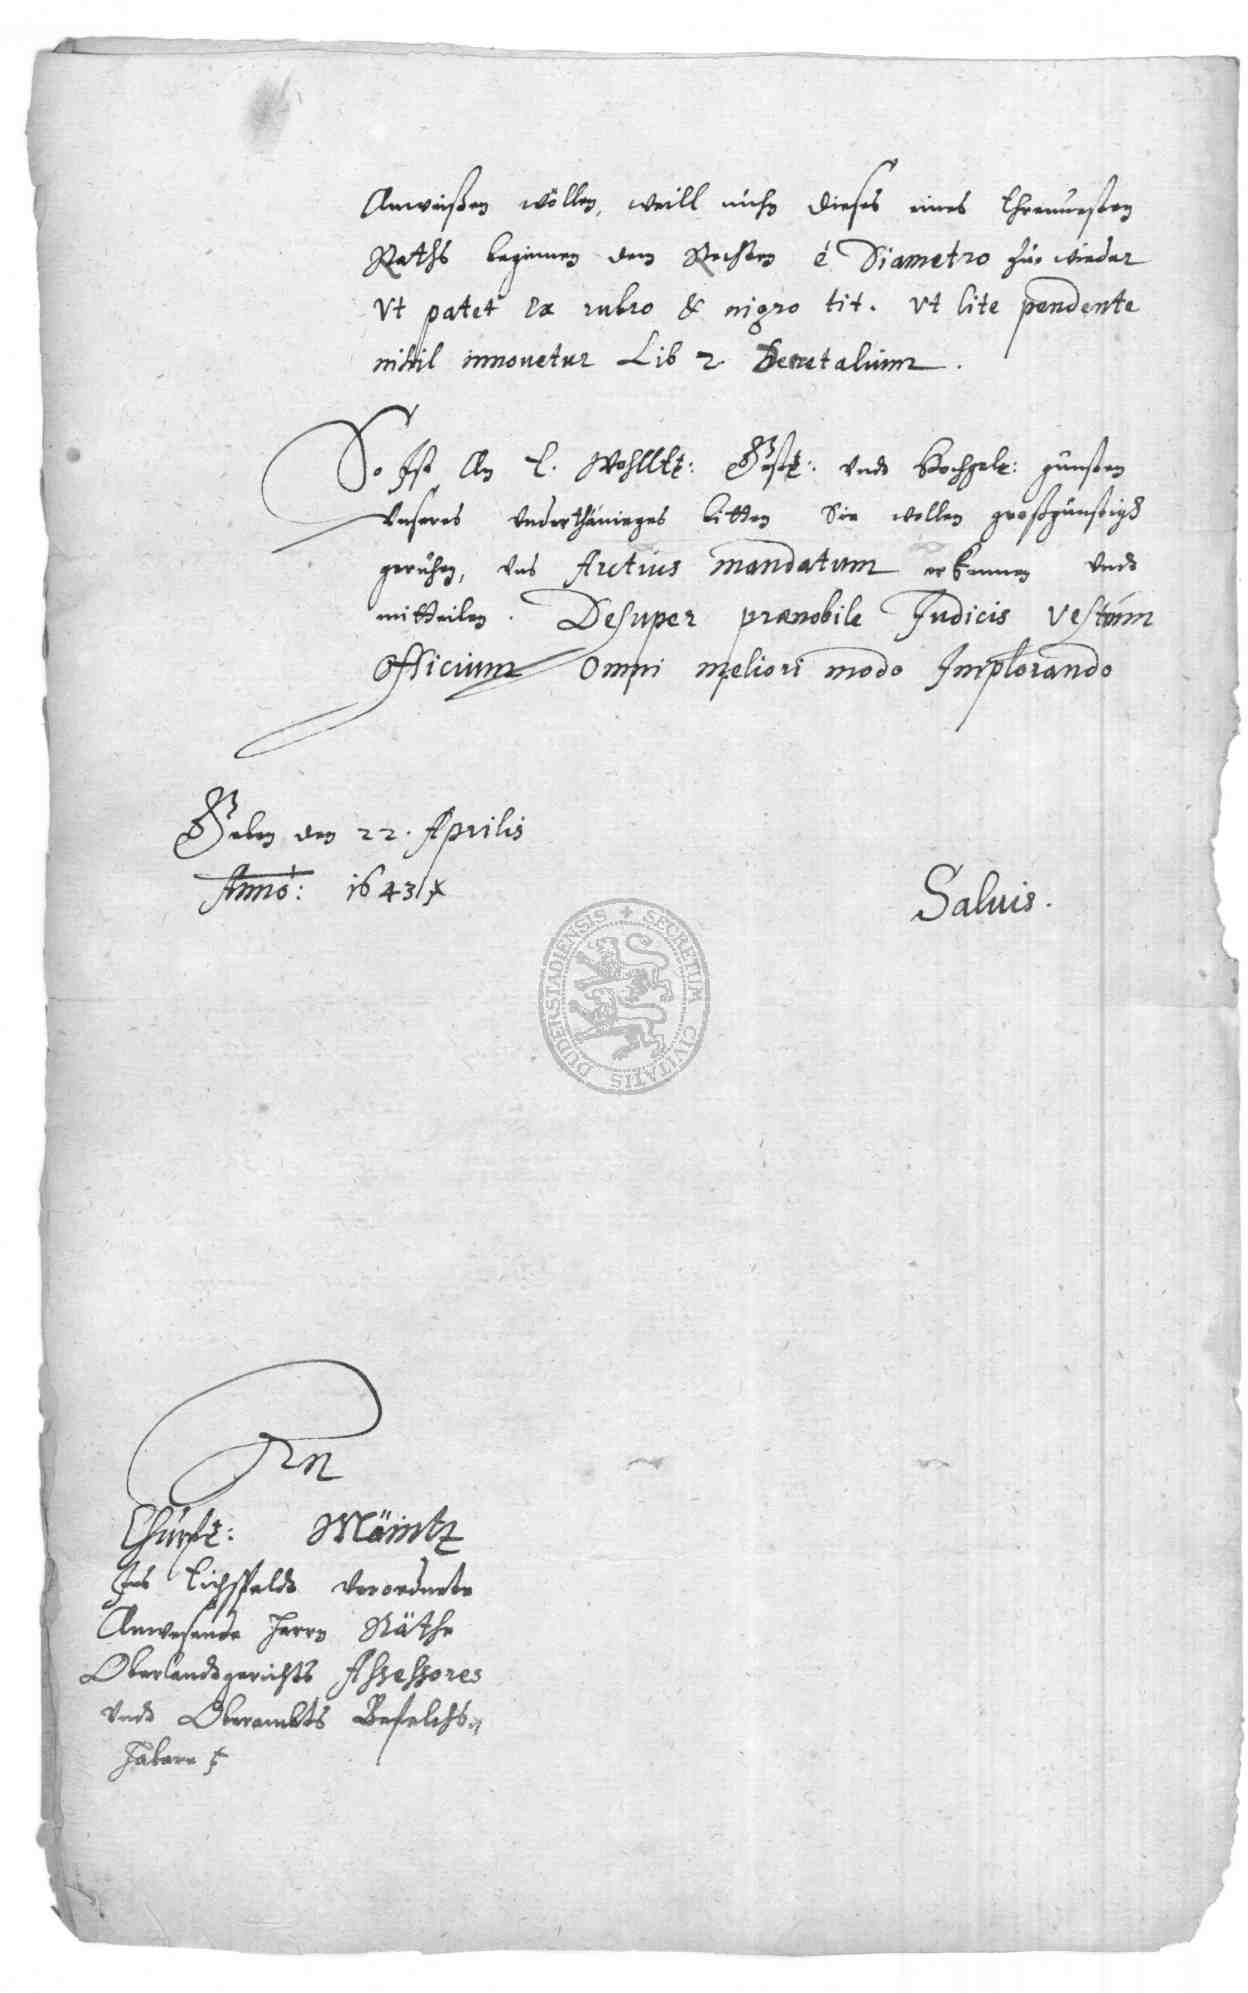 Anweißen wöllen, weill nuhn dieses eines Ehrenuesten
Raths beginnen dem Rechten é Diametro zu wieder
Vt patet ex rubro & nigro tit. Vt lite pendente
nihil innouetur Lib 2. Decretalium.
So Ist An E. Wohlltt: Gestt: vndt Hochgelt: günsten
Vnseres Vnderthäniges bitten Sie wollen großgünstigst
geruhen, vns Arctius mandatum erkennen vndt
mittheilen. Desuper prænobile Judicis Vestrum
Officium Omni meliori modo Implorando
Geben den 22. Aprilis
Anno: 1643
Saluis.
SECRETUM CIVITATIS DUDERSTADIENSIS
An
Churft: Mäintz
Des Eichsfeldts Verordnete
Anwesende Herrn Räthe
Oberlandtgerichts Assessores
vndt Oberambts Befelchs-
habere